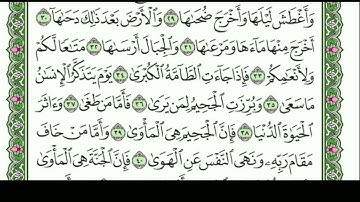 وَأَغْطَشَ لَيْلَهَا وَأَخْرَجَ ضُحَىٰهَا ﴿٢٩﴾ وَٱلْأَرْضَ بَعْدَ ذَٰلِكَ دَحَىٰهَآ ﴿٣٠﴾
أَخْرَجَ مِنْهَا مَآءَهَا وَمَرْعَىٰهَا ﴿٣١﴾ وَٱلْجِبَالَ أَرْسَىٰهَا ﴿٣٢﴾ مَتَٰعًا لَّكُمْ
وَلِأَنْعَٰمِكُمْ ﴿٣٣﴾ فَإِذَا جَآءَتِ ٱلطَّآمَّةُ ٱلْكُبْرَىٰ ﴿٣٤﴾ يَوْمَ يَتَذَكَّرُ ٱلْإِنسَٰنُ
مَا سَعَىٰ ﴿٣٥﴾ وَبُرِّزَتِ ٱلْجَحِيمُ لِمَن يَرَىٰ ﴿٣٦﴾ فَأَمَّا مَن طَغَىٰ ﴿٣٧﴾ وَءَاثَرَ
ٱلْحَيَوٰةَ ٱلدُّنْيَا ﴿٣٨﴾ فَإِنَّ ٱلْجَحِيمَ هِىَ ٱلْمَأْوَىٰ ﴿٣٩﴾ وَأَمَّا مَنْ خَافَ
مَقَامَ رَبِّهِۦ وَنَهَى ٱلنَّفْسَ عَنِ ٱلْهَوَىٰ ﴿٤٠﴾ فَإِنَّ ٱلْجَنَّةَ هِىَ ٱلْمَأْوَىٰ